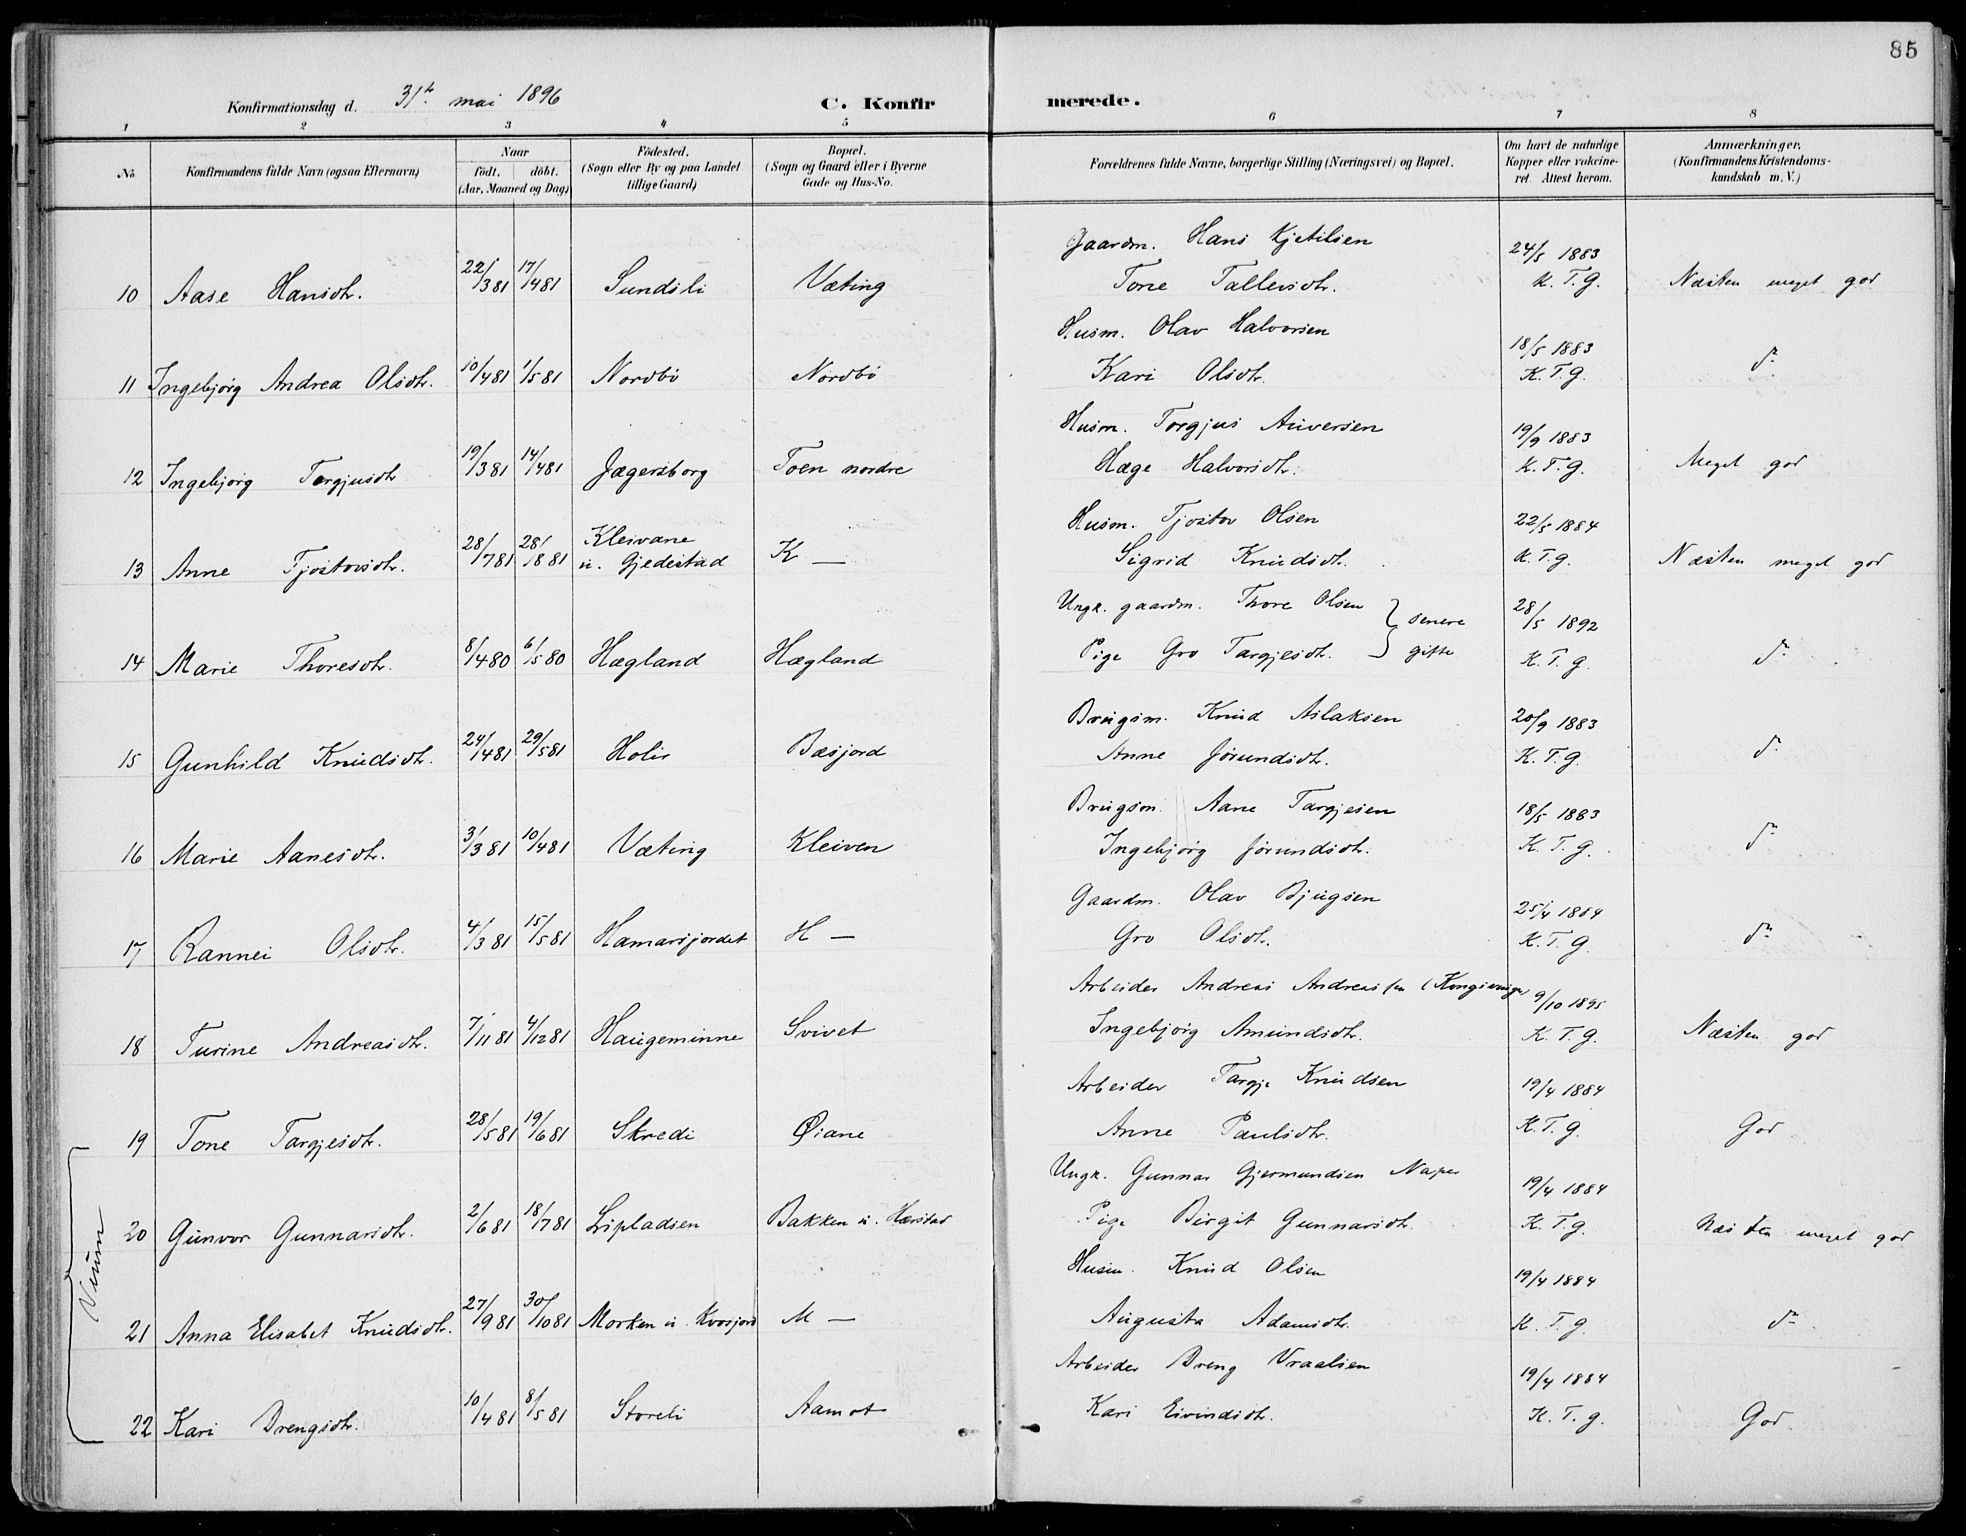 85
Konfirmationsdag d. 31te mai 1896 C. Konfirmerede.
1 2 3 4 5 6 7 8
No
Konfirmandens fulde Navn (ogsaa Efternavn)
Naar
födt. döbt.
(Aar, Maaned og Dag)
Födested.
(Sogn eller By og paa Landet
tillige Gaard)
Bopæl.
(Sogn og Gaard eller i Byerne
Gade og Hus-No.
Forældrenes fulde Navne, borgerlige Stilling (Næringsvei) og Bopæl.
Om havt de naturlige
Kopper eller vakcine-
ret. Attest herom.
Anmærkninger.
(Konfirmandens Kristendoms-
kundskab m. V.)
Gaardm. Hans Kjetilsen 24/5 1883
10 Aase Hansdtr. 22/3 81 17/4 81 Sundsli Væting Tone Tallevsdtr. K. T. G. Næsten meget god
Husm. Olav Halvorsen 18/5 1883
11 Ingebjørg Andrea Olsdtr. 10/4 81 1/5 81 Nordbö Nordbö Kari Olsdtr. K. T. G. do
Husm. Torgjus Auversen 19/9 1883
12 Ingebjørg Torgjusdtr 19/3 81 14/4 81 Jægersborg Toen nordre Hæge Halvorsdtr. K. T. G. Meget god
Husm. Tjostov Olsen 22/5 1884
13 Anne Tjostovsdtr. 28/7 81 28/8 81 Kleivane u. Gjedestad K — Sigrid Knudsdtr. K. T. G. Næsten meget god
Ungk. gaardm. Thore Olsen } senere 28/5 1892
14 Marie Thoresdtr. 8/4 80 6/5 80 Hægland Hægland Pige Gro Targjesdtr. } gifte K. T. G. do
Brugsm. Knud Aslaksen 20/9 1883
15 Gunhild Knudsdtr. 24/4 81 29/5 81 Holir Bæsjord Anne Jørundsdtr. K. T. G. do
Brugsm. Aane Targjesen 18/5 1883
16 Marie Aanesdtr. 3/3 81 10/4 81 Væting Kleiven Ingebjørg Jørundsdtr. K. T. G. do
Gaardm. Olav Bjugsen 25/4 1884
17 Rannei Olsdtr. 4/3 81 15/5 81 Hamarsjordet H — Gro Olsdtr. K. T. G. do
Arbeider Andreas Andreassen (Kongsvinger) 9/10 1895
18 Turine Andreasdtr. 7/11 81 4/12 81 Haugeminne Svivet Ingebjørg Amundsdtr. K. T. G. Næsten god
Arbeider Targje Knudsen 19/4 1884
19 Tone Targjesdtr. 28/5 81 19/6 81 Skredi Øiane Anne Paulsdtr. K. T. G. God
Ungk. Gunnar Gjermundsen Naper 19/4 1884
20 Gunvor Gunnarsdtr. 2/6 81 18/7 81 Lipladsen Bakken u. Harstad Pige Birgit Gunnarsdtr. K. T. G. Næsten meget god
Veum
Husm. Knud Olsen 19/4 1884
21 Anna Elisabet Knudsdtr. 27/9 81 30/10 81 Morken u. Kvosjord M — Augusta Adamsdtr. K. T. G. do
Arbeider Dreng Vraalsen 19/4 1884
22 Kari Drengsdtr. 10/4 81 8/5 81 Storeli Aamot Kari Eivindsdtr. K. T. G. God